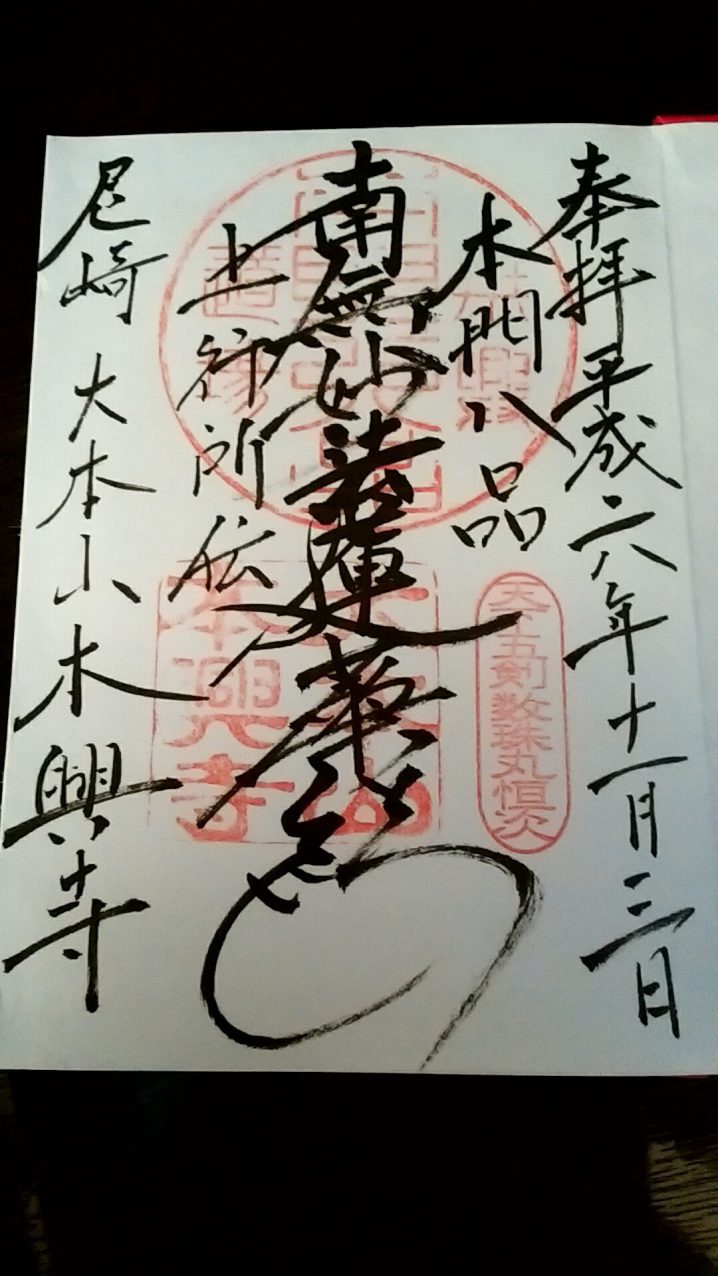 奉拝 平成二八年十一月三日
本門八品
南無妙法蓮華経
上行所伝
尼崎 大本山本興寺
天下五剣数珠丸恒次
大本山
本興寺